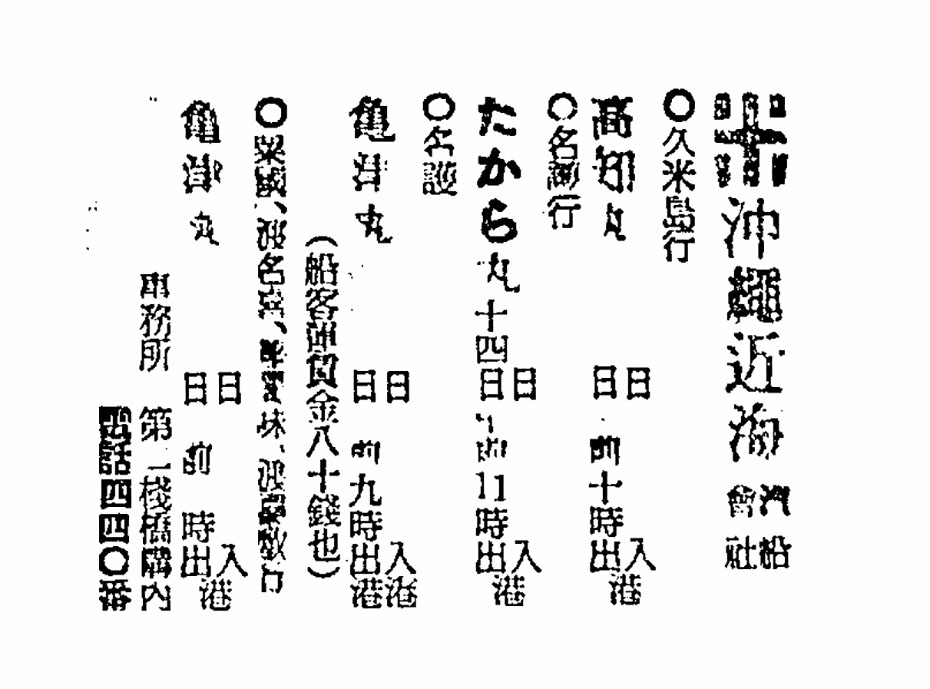 沖縄近海汽船會社
〇久米島行
高知丸 日 日 前十時出 入港
〇名護行
たから丸 十四日 日 前11時出 入港
〇名護
亀津丸 日 日 前九時出港 入港
(船客運賃金八十錢也)
〇粟國、渡名喜、座間味、渡嘉敷行
亀津丸 日 日 前 時出 入港
事務所 第一棧橋構内
電話四四〇番